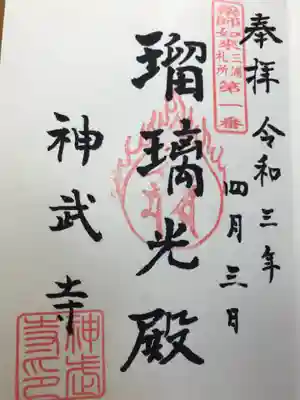 奉拝
令和三年
四月三日
薬師如来
三浦
札所
第一番
瑠璃光殿
神武寺
神武
寺印